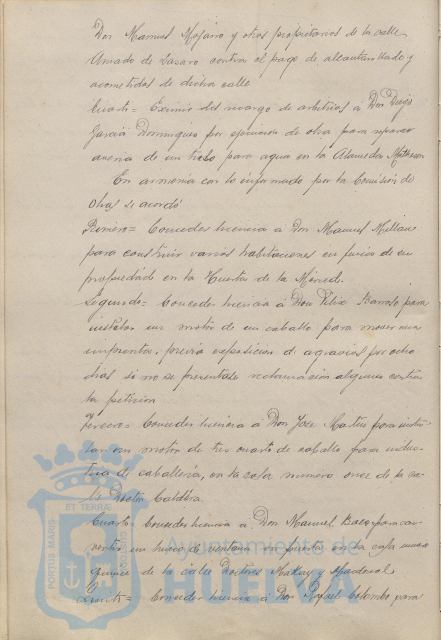 Don Manuel Mojarro y otros propietarios de la calle
Amado de Lazaro contra el pago de alcantarillado y
acometidas de dicha calle
Cuarto= Eximir del recargo de arbitrios á Don Diego
Garcia Dominguez por ejecucion de obra para reparar
averia de un tubo para agua en la Alameda
En armonia con lo informado por la Comision de
Obras se acordó
Primero= Conceder licencia á Don Manuel Millan
para construir varias habitaciones en finca de su
propiedad en la Huerta de la Merced.
Segundo= Conceder licencia á Don Felix Barroso para
instalar un motor de un caballo para mover una
imprenta, previa exposicion de agravios por ocho
dias si no se presentase reclamacion alguna contra
la peticion
Tercero= Conceder licencia á Don Jose Mateu para insta-
lar un motor de tres cuarto de caballo para indus-
tria de caballeria, en la casa numero once de la ca-
lle Doctor Caldera.
Cuarto= Conceder licencia á Don Manuel Baez para con-
vertir un hueco de ventana en puerta en la casa numero
quince de la calle Doctores Mackay y Macdonal
Quinto= Conceder licencia á Don Rafael Colombo para
PORTUS MARIS
ET TERRÆ
Ayuntamiento de
HUELVA